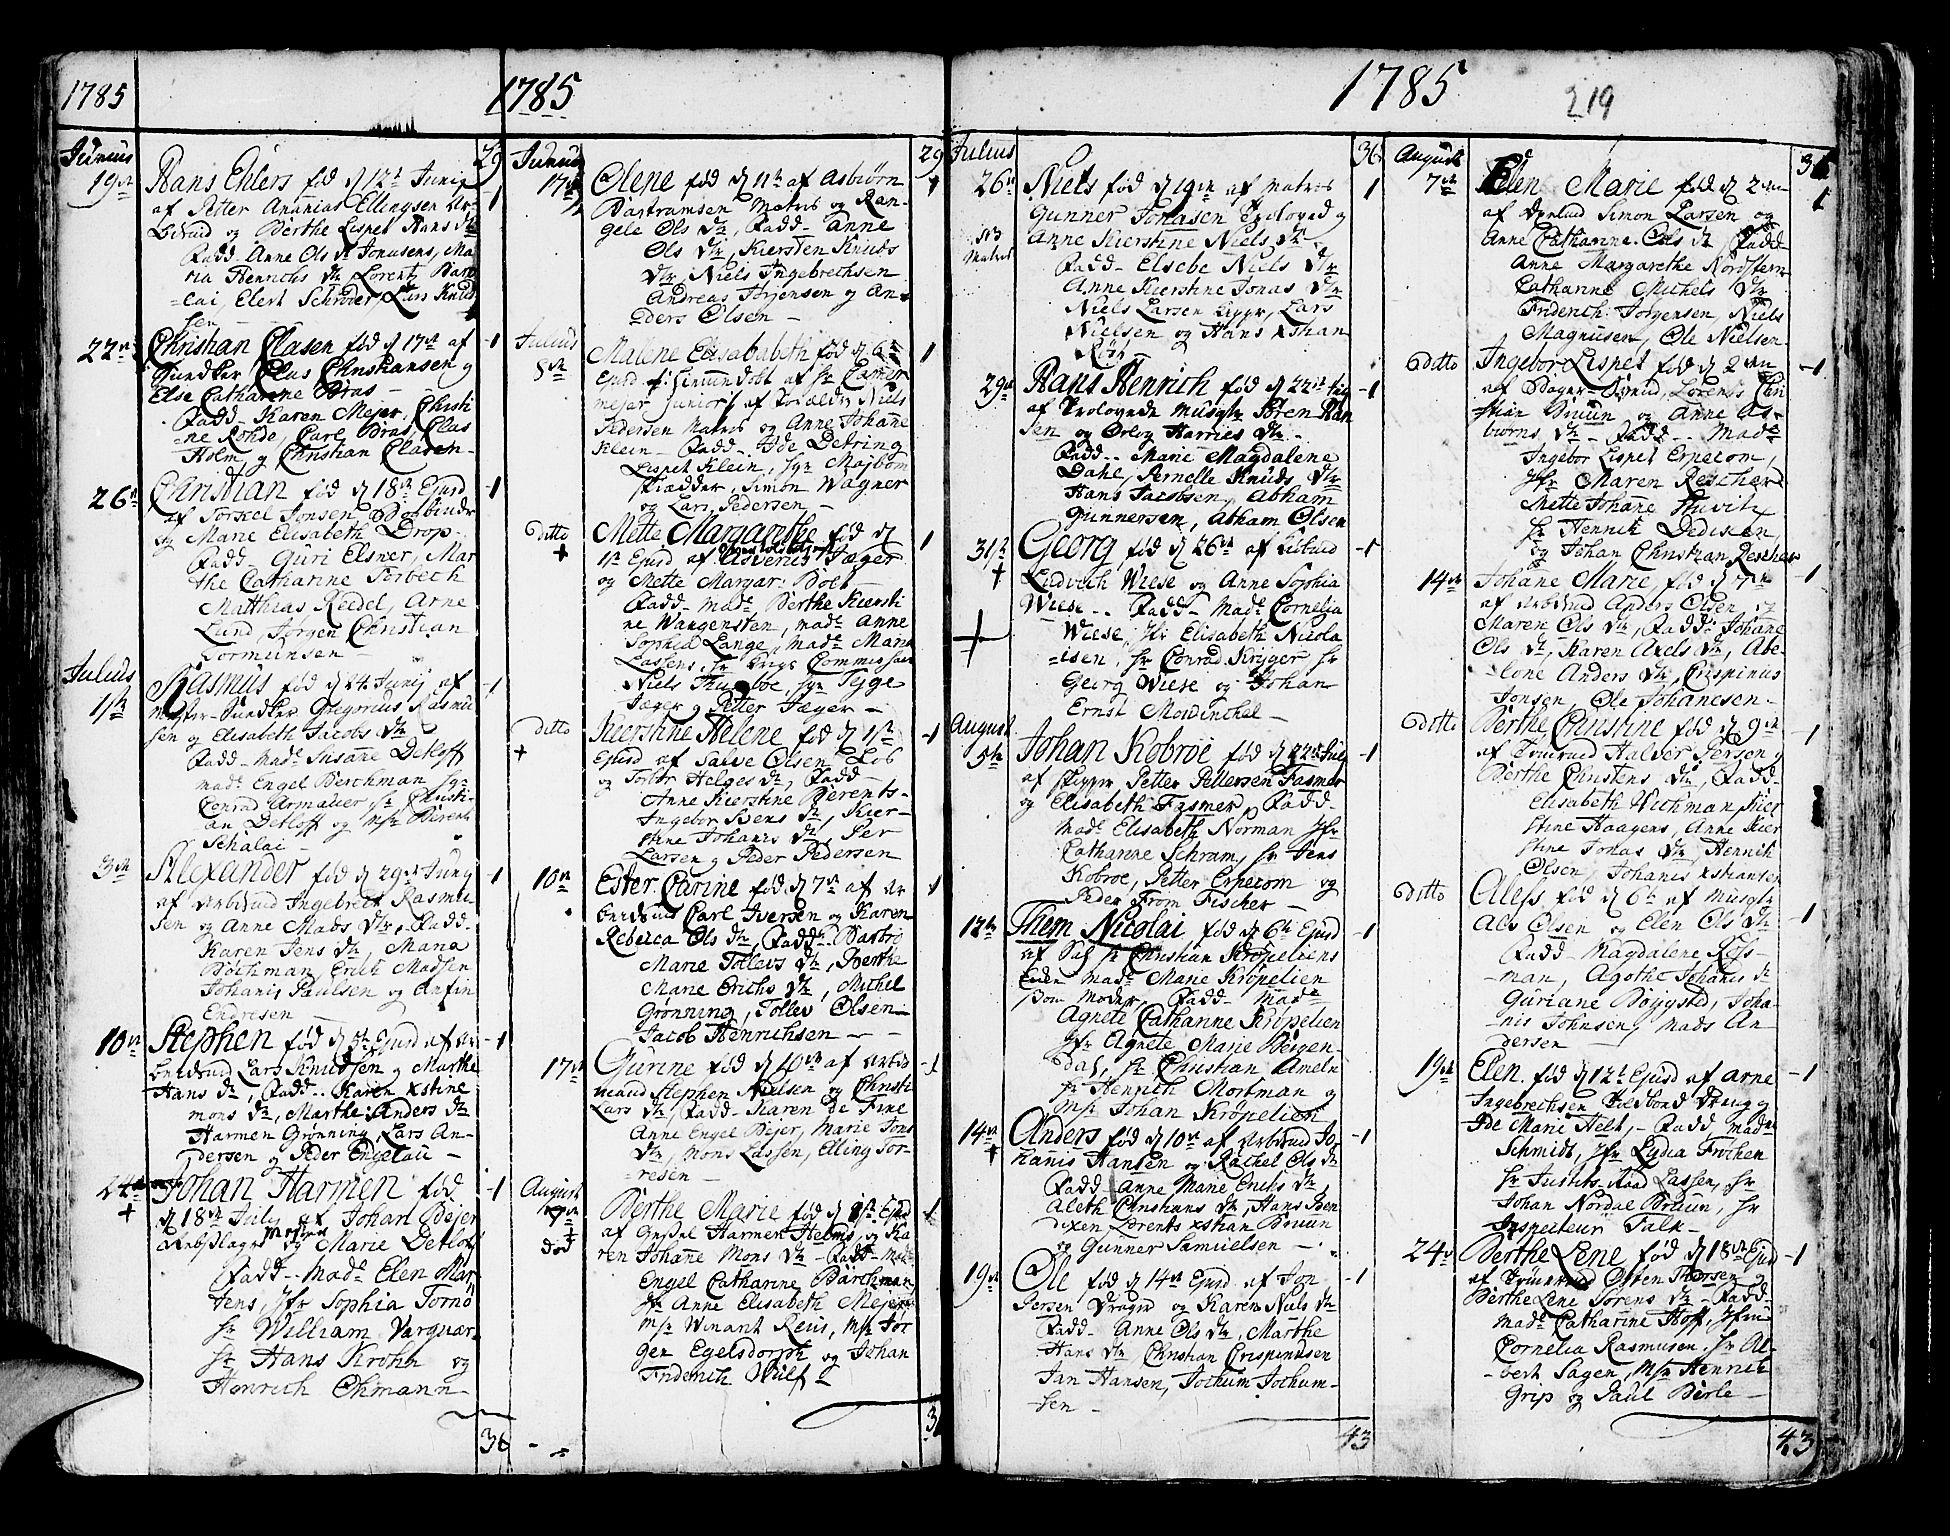 1785
1785
Junius
29
19de
Hans Ehlers fød d 12t Junij
1
af Petter Ananias Ellingsen Ar-
og Berthe Lispet Hans dtr
Fadd- Anne Ols dr Jonusens, Ma
ria Henrichs dtr, Lorentz
Elert Schrøder, Lars Knud
sen
22de
Christian Clasen fød d 17de af
1
Clas Christiansen og
Else Catharine Bras
Fadd- Karen Mejer, Christi
ne Rohde, Carl Bras, Clas
Holm og Christian Clasen
26de
Christian fød d 18de Ejusd
1
af Torkel Jonsen
og Marie Elisabeth Drop-
Fadd- Guri Elsner, Mar
the Catharine Torbech
Matthias Reidel, Arne
Lund, Jørgen Christian
Julius
1ste
Rasmus fød d 24de Junij af
1
Gregorius Rasmu
sen og Elisabeth Jacobs dtr
Fadd- Made Susane Detloff
made Engel Berchman
Conrad sr Christi-
an Detloff og
3de
Alexander fød d 29de Junij
1
af Arbdsud Ingebrect Rasmu
sen og Anne Mads dtr, Fadd-
Karen Jens dtr, Maria
Bøchman, Erich Madsen
Johanis Paulsen og Anfin
Endresen
10de
Stephen fød d 5te Ejusd af Ar
1
Lars Knudsen og Marthe
Hans dr, Fadd- Karen xstine
Mons dr, Marthe Anders dr
Harmen Grønning, Lars An-
dersen og Peder Engelau
24de
+
Johan Harmen fød
1
d 18de July af Johan Bejer
og Marie Detlof
Fadd- Made Elen Mar
tens, Jfr Sophia Tornø
Sr William
Sr Hans Krohn og
Henrich Ohmann
36
Junius
29
17de
Olene fød d 11te af Asbiørn
1
Bastramsen Matros og Ran-
gele Ols dtr, Fadd- Anne
Ols dtr, Kiersten Knuds
dtr, Niels Ingebrechsen
Andreas og An-
ders Olsen
Julius
8de
Malene Elisababeth fød d 6te
1
Ejusd af Sr
mejer junior af Niels
Pedersen Matros og Anne Johane
Klein- Fadd- Ide Detring
Lispet Klein, Majbom
skrædder, Simon Wagner
og Lars Pedersen
ditto
+
Mette Margarethe fød d
1
1te Ejusd af Asverus Jæger
og Mette Margar: Bolt
Fadd- Made Berthe Kiersti
ne Wangensten, Made Anne
Sophia Lange, Made Maria
Lassens, Sr Krigs Commissair
Niels Jejge
Jæger og Petter Jæger
ditto
+
Kierstine Helene fød d 1ste
1
Ejusd af Salve Olsen Los
og Helges dr, Fadd-
Anne Kierstine Berents-
Ingebor Svens dr, Kier-
stine Johanis dtr, Per
Larsen og Peder Pedersen
10de
Ester Carine fød d 7de af Ar
1
Carl Iversen og Karen
Rebecca Ols dtr, Fadd- Barbro
Marie Tollevs dtr, Berthe
Marie Erichs dtr, Michel
Grønning, Tollev Olsen
Jacob Henrichsen
17de
Gurine fød d 10de af Arbds
1
Stephen Nielsen og Christi
Lars dtr, Fadd- Karen de Fine
Anne Engel Bejer, Marie Jons
dtr, Mons Lassen, Elling Tor-
resen
August
død
Berthe Marie fød d 1ste Ejusd
1
af Harmen Helms og Ka
ren Johane Mons dtr- Fadd- Made
Engel Catharine Barchman
Jfr Anne Elisabeth Mejer
Msr Winant Reus, Msr Jør
gen Egelsdorph og Johan
Friderich Wulf
36
1785
219
Julius
36
26de
Niels fød d 19de af Matros
1
Gunner Jonasen og
Anne Kierstine Niels dtr
Fadd- Elsebe Niels dtr
Anne Kierstine Jonas dtr
Niels Larsen, Lars
Nielsen og Hans xstian
29de
Hans Henrich fød d 22de July
1
af Trolovede Musqtr Søren Han
sen og Harries dtr-
Fadd- Marie Magdalene
Dahl, Pernelle Knuds dtr
Hans Jacobsen, Abham
Gunnersen, Abham Olsen
31te
+
Georg fød d 26de af
1
Ludvich Wiese og Anne Sophia
Wiese- Fadd- Made Cornelia
Wiese, Elisabeth Nicola
isen, Sr Conrad Krÿger Sr
Georg Wiese og Johan
Ernst Mowinchel
August
5te
Johan Kobroe fød d 22de July
1
af skippr Petter Pettersen Fasmer
og Elisabeth Fasmer, Fadd-
Made Elisabeth Norman Jfr
Catharine Schram, Sr Jens
Kobroe, Petter Erpecom og
Peder From Fischer
12te
Them Nicolai fød d 6te Ejusd
1
af Sal Sr Christian Krøpeliens
Made Marie Krøpelien
som moder, Fadd- Made
Agnete Catharine Krøpelien
Jfr Agnete Marie Bergen-
dal, Sr Christian Ameln
Sr Henrich Mortman og
Msr Johan Krøpelien
14de
+
Anders fød d 10de af Arbdsud Jo-
1
hanis Hansen og Rachel Ols dr
Fadd- Anne Marie Erichs dtr
Aleth Christians dtr, Hans Ben
dixen Lorents xstian Bruun
og Gunner Samuelsen
19de
Ole fød d 14de Ejusd af Jon
1
Persen Drager og Karen Niels dtr
Fadd- Anne Ols dtr, Marthe
Hans dtr Christian Crispinusen
Jan Hansen, Jochum Jochum-
sen
43
August
36
7de
Elen Marie fød d 2den
1
af Simon Larsen og
Anne Catharine Ols dr Fadd
Anne Margarethe Nordstern
Catharine Michels dtr
Friderich Jørgensen, Niels
Magnusen, Ole Nielsen
ditto
Ingebor Lispet fød d 2den
1
af Lorents Chri
stian Bruun og Anne As-
biørns dtr- Fadd- Made
Ingebor Lispet Erpecom,
Jfr Maren Rescher
Mette Johane
Sr Henrich Dedisen
og Johan Christian Rescher
14de
Johane Marie fød d 7de
1
af Arbdsud Anders Olsen og
Maren Ols dtr, Fadd: Johane
Ols dtr, Karen Axels dtr, Abe-
lone Anders dtr, Crispinus
Jonsen, Ole Johanesen-
ditto
Berthe Christine fød d 9de
1
af Halvor Persen og
Berthe Christens dtr, Fadd-
Elisabeth Wichman, Kier
stine Haagens, Anne Kier
stine Jonas dtr, Henrich
Olsen, Johanis xstiansen
ditto
Alefs fød d 6te af Musqtr
1
Als Olsen og Elen Ols dtr
Fadd- Magdalene Røs-
man, Agothe Johanis dr
Guriane Bøygsted, Joha-
nis Johnsen, Mads An
dersen
19de
Elen fød d 12te Ejusd af Arne
1
Ingebrechsen og
Ide Marie Helt,- Fadd Made
Schmidt, Jfr Lydia Frøchen
Sr Justits Raad Lassen, Sr
Johan Nordal Bruun, Sr
Inspecteur Falk
24de
Berthe Lene fød d 18de Ejusd
1
af Often Thorsen og
Berthe Lene Sørens dtr- Fadd
Made Catharine Hoff,
Cornelia Rasmusen, Sr Al-
bert Sagen, Msr Henrich
Grip og Paul Birle
43